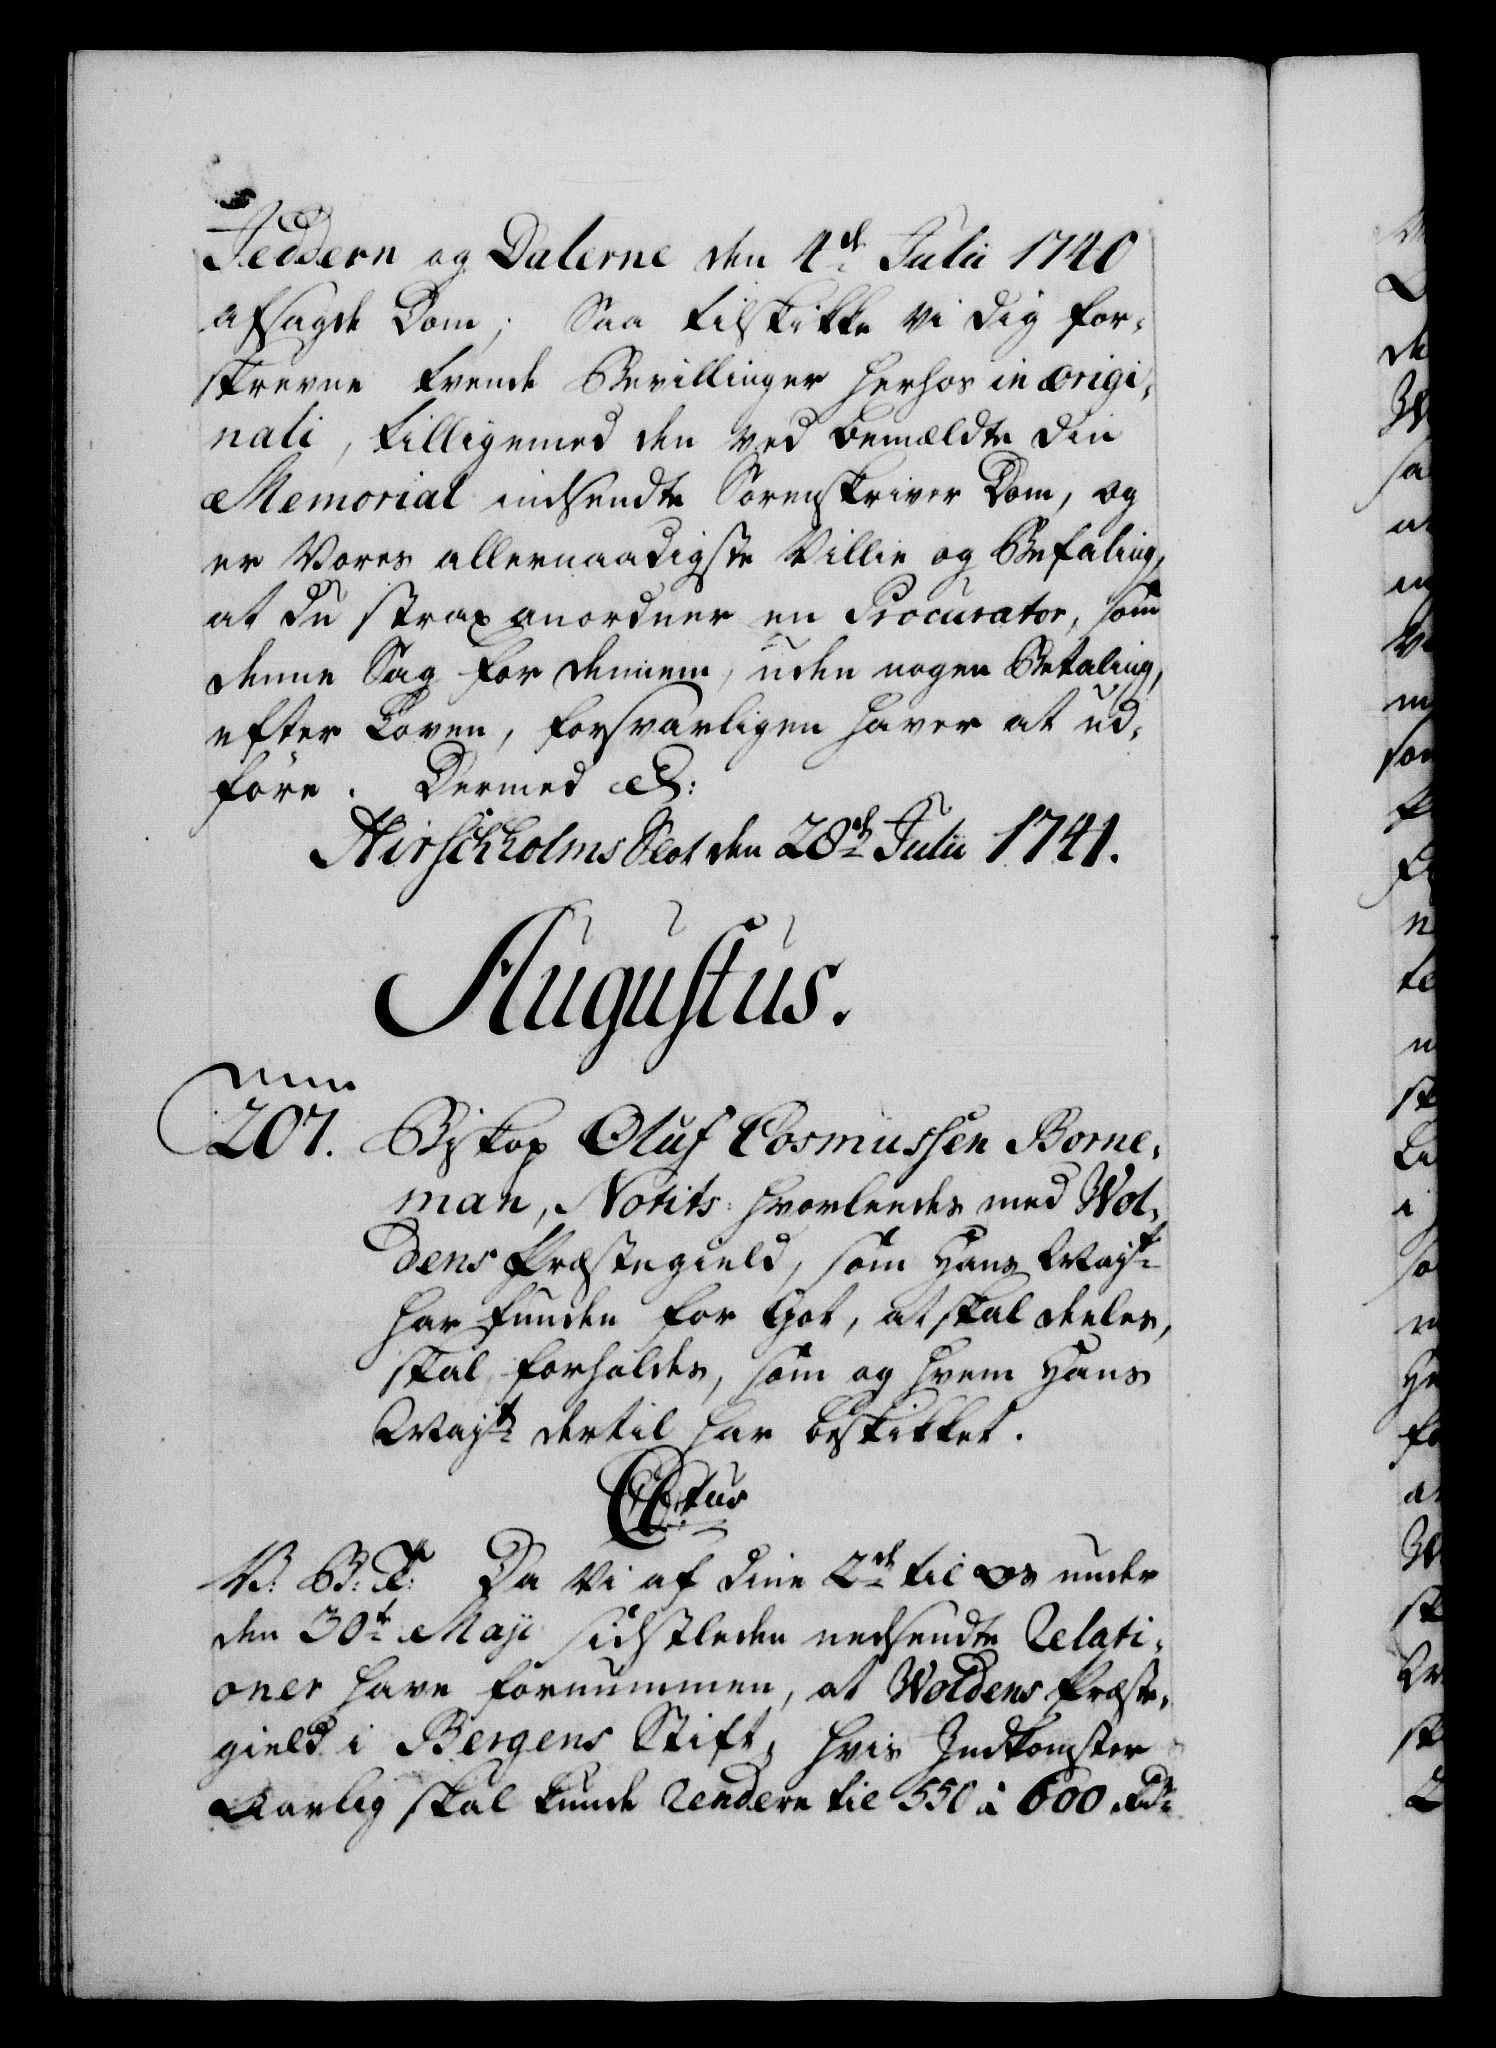 Jeddern og Dalerne den 4de Julii 1740
afsagde Dom; Saa tilskikke Vi dig for-
skrevne tvende Bevillinger herhos in origi-
nali, tilligemed den ved bemældte din
Memorial indsendte Sorenskriver Dom, og
er Vores allernaadigste Villie og Befaling,
at du strax anordner en Procurator, som
denne Sag for dennem, uden nogen Betaling,
efter Loven, forsvarligen haver at ud-
føre. Dermed &:
Hirschholms Slot den 28de Julii 1741.
Augustus.
num
207. Biskop Oluf Cosmussen Borne-
man, Notits: hvorledes med Wol-
dens Præstegield, som Hans Mayst
har funden for Got, at skal deeles,
skal forholdes, som og hvem Hans
Mayt dertil har beskikket.
C 6tus
V: B: T: Da Vi af dine 2de til Os under
den 30te Maji sidstleden nedsendte Relati-
oner have fornummen, at Woldens Præste-
gield i Bergens Stift, hvis Indkomster
Aarlig skal kunde rendere til 550 à 600 Rdr